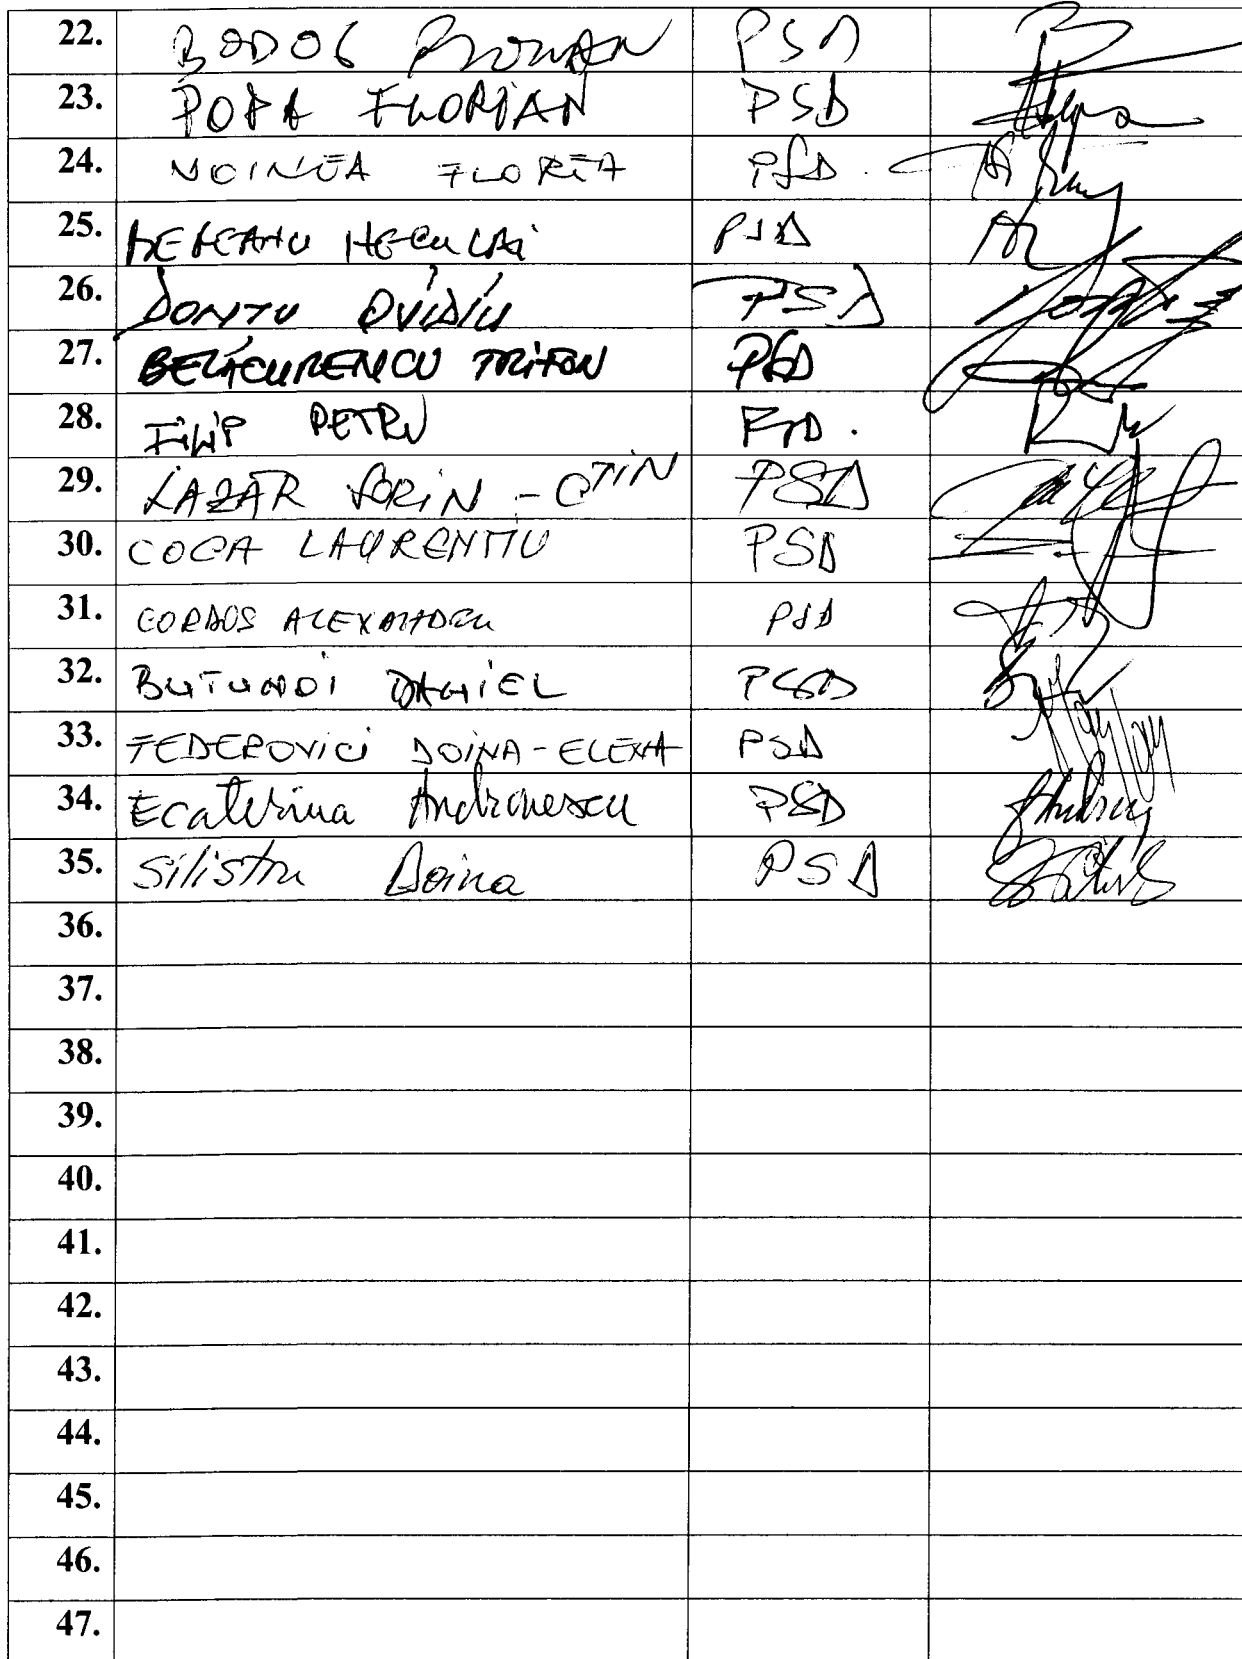 22. BODOG PSD
23. POPA FLORIAN PSD
24. PSD.
25. PSD
26. DONTU OVIDIU PSD
27. BELACURENCU TRIFON PSD
28. FILIP PETRU PSD.
29. LAZAR SORIN - CTIN PSD
30. COCA LAURENTIU PSD
31. CORDOS ALEXANDRU PSD
32. BUTUNOI DANIEL PSD
33. FEDEROVICI DOINA-ELENA PSD
34. Ecaterina Andronescu PSD
35. Silistru Doina PSD
36.
37.
38.
39.
40.
41.
42.
43.
44.
45.
46.
47.